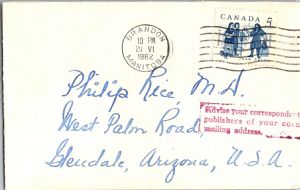 BRANDON
10 PM
20 VI
1962
MANITOBA
CANADA 5
Philip Rice M.A.
West Palm Road,
Glendale, Arizona, U.S.A.
Advise your correspondent
publishers of your corr
mailing address.